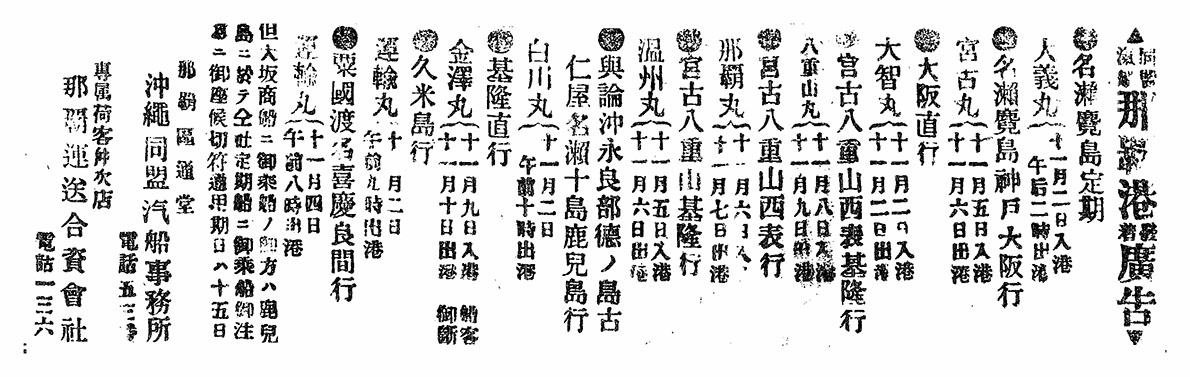 同盟汽船 那覇港發着廣告
●名瀬鹿兒島定期
大義丸 十一月二日入港 午后二時出港
●名瀬鹿兒島神戸大阪行
宮古丸 十一月五日入港 十一月六日出港
●大阪直行
大智丸 十一月二日入港 十一月二日出港
宮古八重山西表基隆行
八重山丸 十一月八日入港 十一月九日出港
●宮古八重山西表行
那覇丸 十一月六日入 十一月七日出港
●宮古八重山基隆行
温州丸 十一月五日入港 十一月六日出港
●與論沖永良部德ノ島古
仁屋名瀬十島鹿兒島行
白川丸 十一月二日 午前十時出港
●基隆直行
金澤丸 十一月九日入港 十一月十日出港 船客御斷
●久米島行
運輸丸 十一月二日 午前九時出港
●粟國渡名喜慶良間行
運輸丸 十一月四日 午前八時出港
但大坂商船ニ御乘船ノ御方ハ鹿兒
島ニ於テ仝社定期船ニ御乘船御注
意ニ御座候切符通用期日ハ十五日
那覇區通堂
沖繩同盟汽船事務所
電話五三
專属荷客取次店
那覇運送合資會社
電話一三六